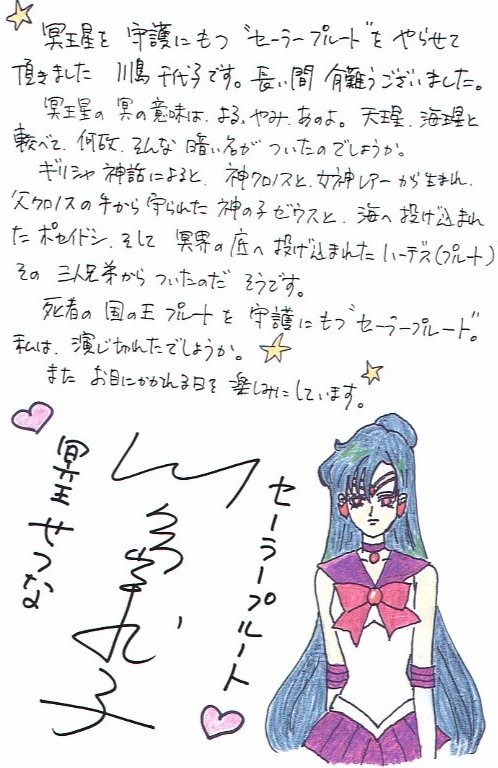 冥王星を守護にもつ“セーラープルート”をやらせて
頂きました 川島千代子です。長い間 有難うございました。
冥王星の冥の意味は、よる、やみ、あのよ。天王星、海王星と
較べて、何故、そんな暗い名がついたのでしょうか。
ギリシャ神話によると、神クロノスと、女神レアーから生まれ、
父クロノスの手から守られた神の子ゼウスと、海へ投げ込まれ
たポセイドン、そして 冥界の底へ投げ込まれたハーデス(プルート)
その三人兄弟からついたのだ そうです。
死者の国の王プルートを守護にもつ“セーラープルート”。
私は、演じ切れたでしょうか。
また お目にかかれる日を楽しみにしています。
セーラープルート
川島千代子
冥王せつな